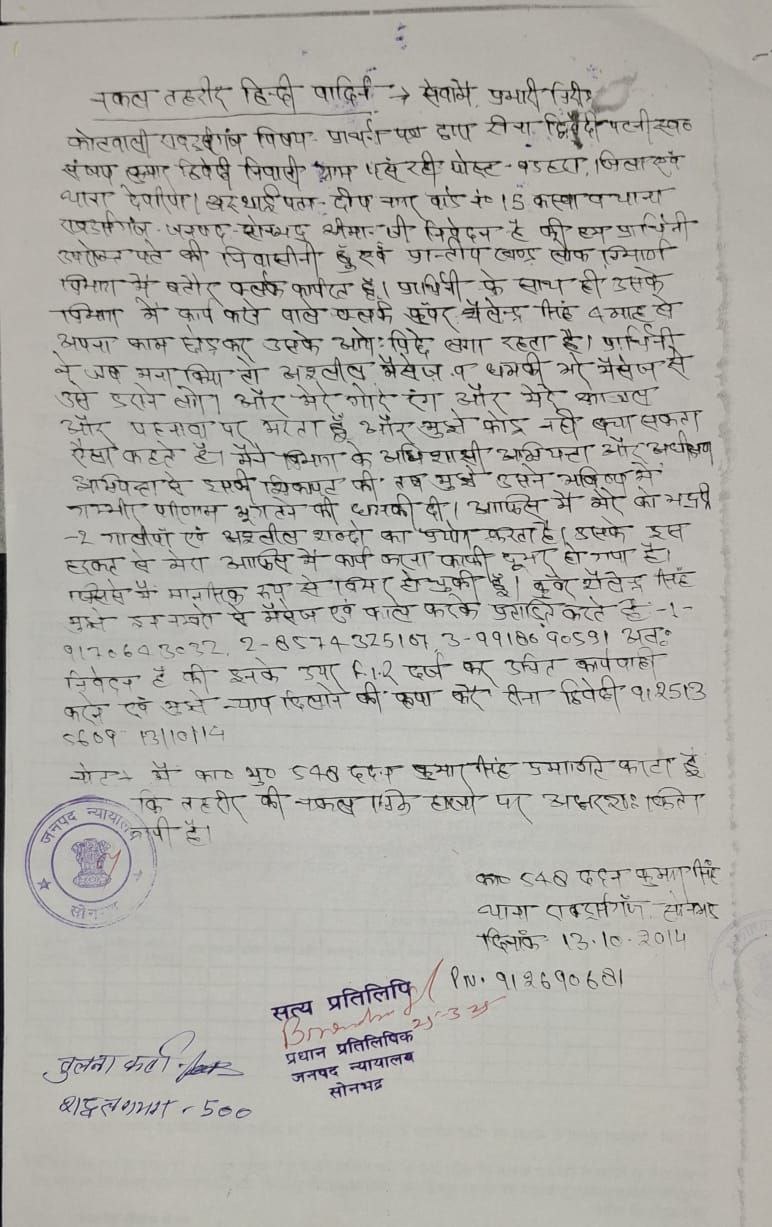 नकल तहरीर हिन्दी वादिनी → सेवामे, प्रभारी निरी०
कोतवाली राबर्ट्सगंज विषय- प्रार्थना पत्र द्वारा रीना द्विवेदी पत्नी स्व०
संजय कुमार द्विवेदी निवासी ग्राम पोस्ट- जिला एवं
थाना देवरिया। अस्थाई पता- दीप नगर वार्ड नं० 15 कस्बा व थाना
राबर्ट्सगंज- जनपद- सोनभद्र श्रीमान जी निवेदन है की हम प्रार्थिनी
उपरोक्त पते की निवासीनी हूँ एवं प्रान्तीय खण्ड लोक निर्माण
विभाग में बतौर क्लर्क कार्यरत है। प्रार्थिनी के साथ ही उसके
विभाग में कार्य करने वाले क्लर्क कुँवर शैलेन्द्र सिंह 4 माह से
अपना काम छोड़कर उसके आगे: पिछे लगा रहता है। प्रार्थिनी
ने जब मना किया तो अश्लील मैसेज व धमकी भरे मैसेज से
उसे डराने लगे। और मेरे गोरे रंग और मेरे काजल
और पहनावा पर मरता हूँ और मुझे कोई नही बचा सकता
ऐसा कहते है। मैने विभाग के अधिशासी अभियन्ता और अधीक्षण
अभियन्ता से इसकी शिकायत की तब मुझे उसने भविष्य में
गम्भीर परिणाम भूगतने की धमकी दी। आफिस में मेरे को भद्दी
-2 गालीयाँ एवं अश्लील शब्दो का प्रयोग करता है। उसके इस
हरकत से मेरा आफिस में कार्य करना काफी दूभर हो गया है।
जिससे मैं मानसिक रूप से बिमार हो चुकी हूँ। कुंवर शैलेन्द्र सिंह
मुझे इन नम्बरो से मैसेज एवं काल करके प्रताड़ित करते है -1-
9170643032, 2-8574325167 3-9918690591 अतः
निवेदन है की इनके उपर F.I.R दर्ज कर उचित कार्यवाही
करने एवं मुझे न्याय दिलाने की कृपा करें रीना द्विवेदी 912513
5609 13/10/14
नोट- मैं का० मु० 548 ददन कुमार सिंह प्रमाणित करता हूँ
कि तहरीर की नकल अक्षरशः किता
गयी है।
का० 548 ददन कुमार सिंह
थाना राबर्ट्सगंज, सोनभद्र
दिनांक 13.10.2014
PN. 912690681
जनपद न्यायालय
सोनभद्र
सत्य प्रतिलिपि
25-3-25
प्रधान प्रतिलिपिक
जनपद न्यायालय
सोनभद्र
तुलना कर्ता-
शब्द लगभग - 500